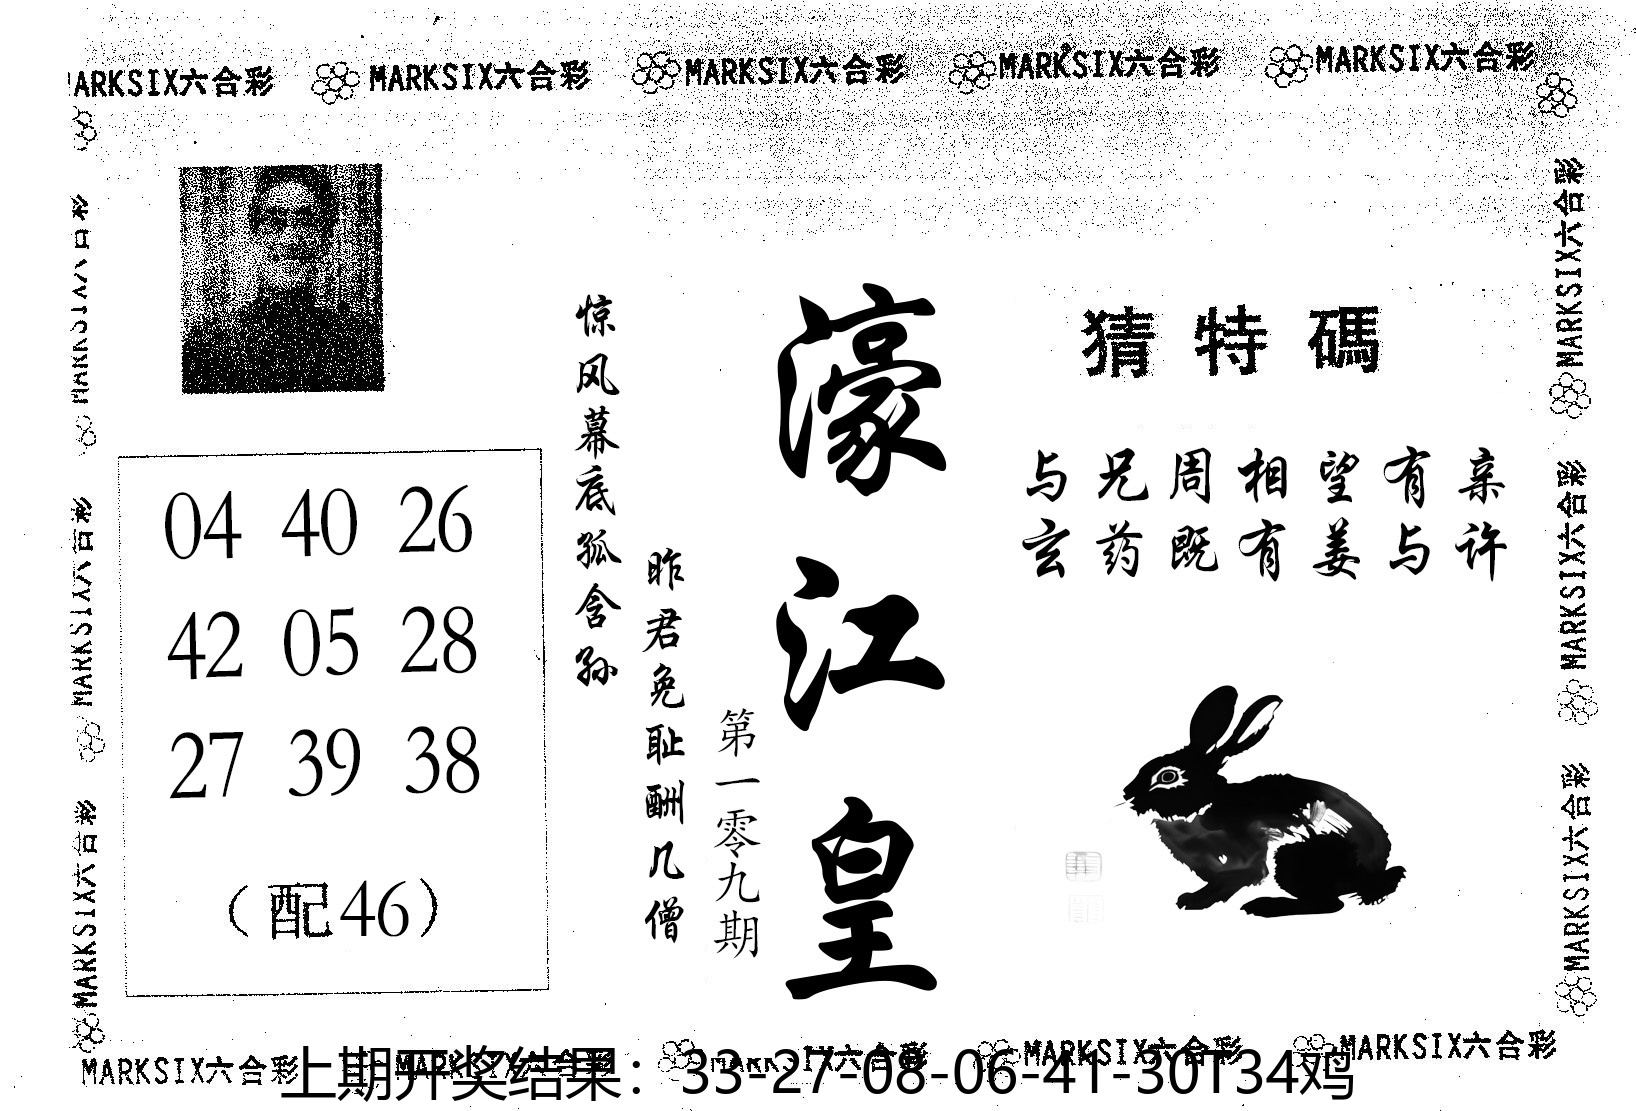 MARKSIX六合彩 MARKSIX六合彩 MARKSIX六合彩 MARKSIX六合彩 MARKSIX六合彩
MARKSIX六合彩
MARKSIX六合彩
MARKSIX六合彩
04 40 26
42 05 28
27 39 38
(配46)
惊风幕底孤含孙
昨君免耻酬几僧
第一零九期
濠江皇
猜特碼
与兄周相望有亲
玄药既有姜与许
MARKSIX六合彩
MARKSIX六合彩
MARKSIX六合彩
MARKSIX六合彩 MARKSIX六合彩 MARKSIX六合彩 MARKSIX六合彩 MARKSIX六合彩
上期开奖结果：33-27-08-06-41-30T34鸡